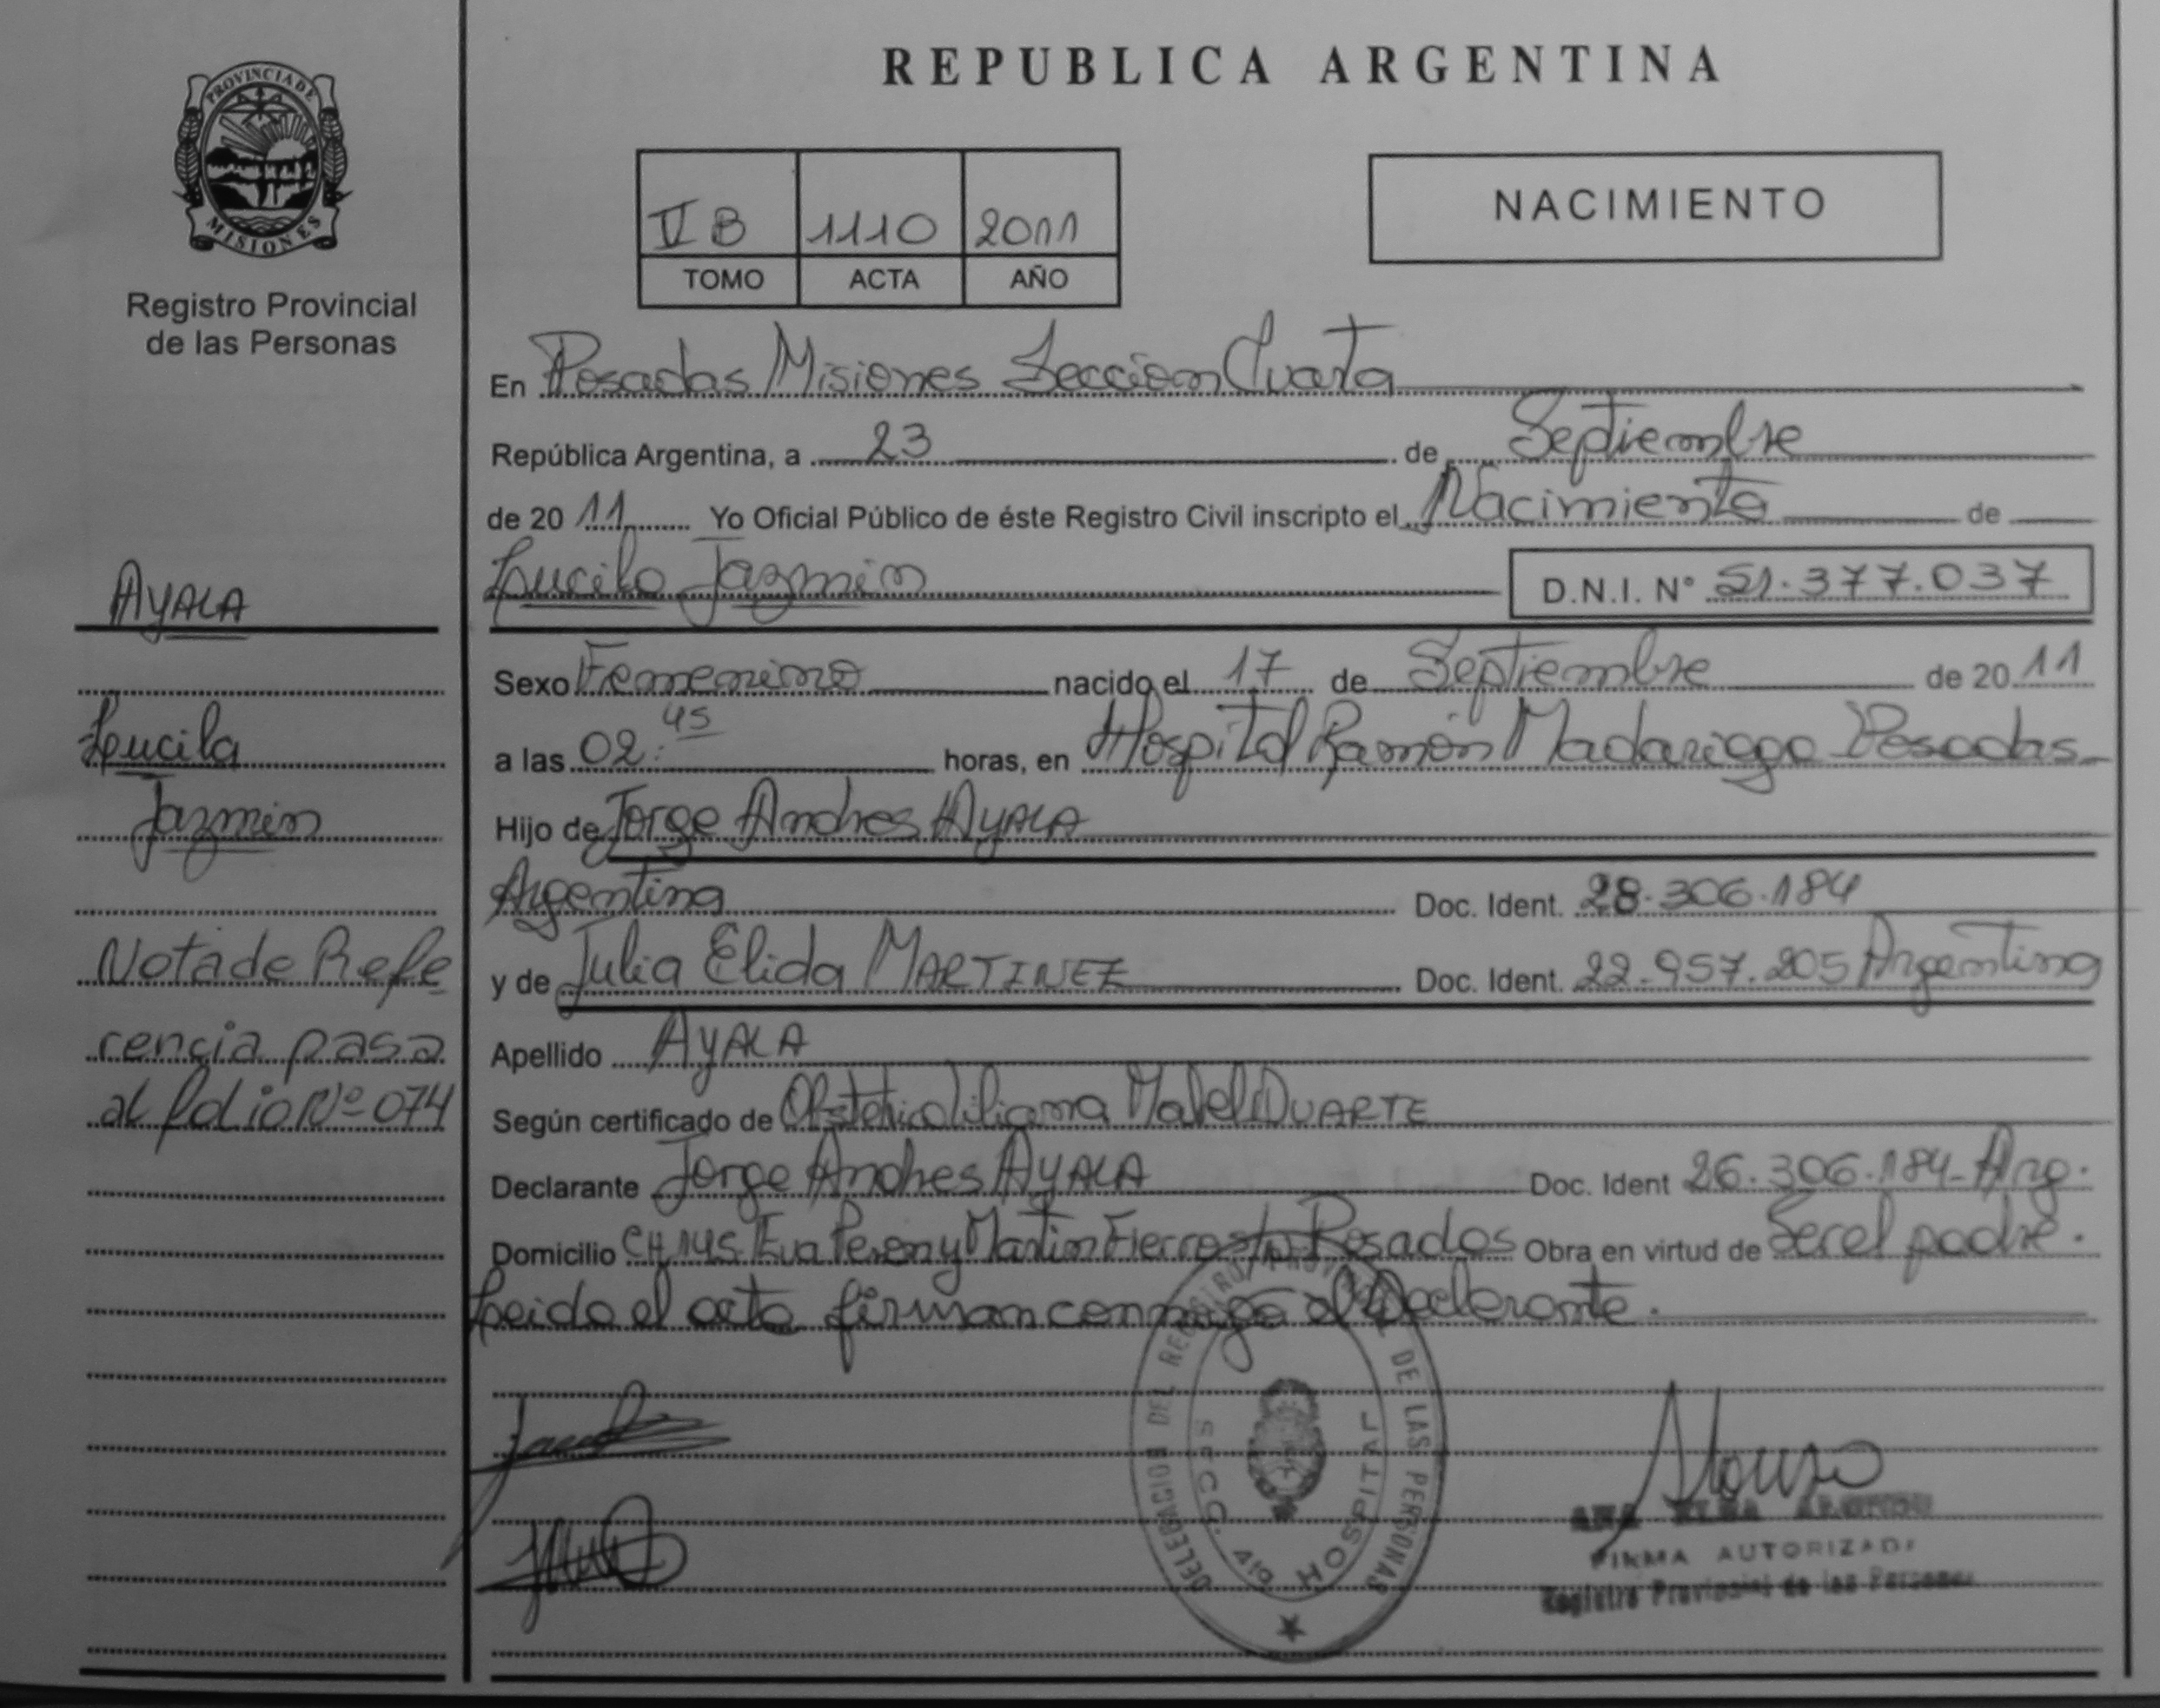 REPUBLICA ARGENTINA
PROVINCIA DE
MISIONES
Registro Provincial
de las Personas
NACIMIENTO
1110 2011
TOMO ACTA AÑO
En Posadas Misiones Seccion Cuarta
República Argentina, a 23 de Septiembre
de 2011 Yo Oficial Público de éste Registro Civil inscripto el Nacimiento de
Lucila Jazmin D.N.I. N° 51.377.037
AYALA
Lucila
Jazmin
Nota de Refe
rencia pasa
al folio Nº 074
Sexo Femenino nacido el 17 de Septiembre de 2011
a las 02:45 horas, en Hospital Ramón Madariaga Posadas
Hijo de Jorge Andres AYALA
Argentina Doc. Ident. 28.306.184
y de Julia Elida MARTINEZ Doc. Ident. 22.957.205 Argentina
Apellido AYALA
Según certificado de Liliana Mabel DUARTE
Declarante Jorge Andres AYALA Doc. Ident 26.306.184 Arg.
Domicilio CH 145 Eva Peron y Martin Fierro s/n Posadas Obra en virtud de Ser el padre.
Leida el acta firman conmigo el Declarante.
DELEGACION DEL REGISTRO PROVINCIAL DE LAS PERSONAS
SECC. 4ta HOSPITAL
Alonso
ANA ALONSO
FIRMA AUTORIZADA
Registro Provincial de las Personas